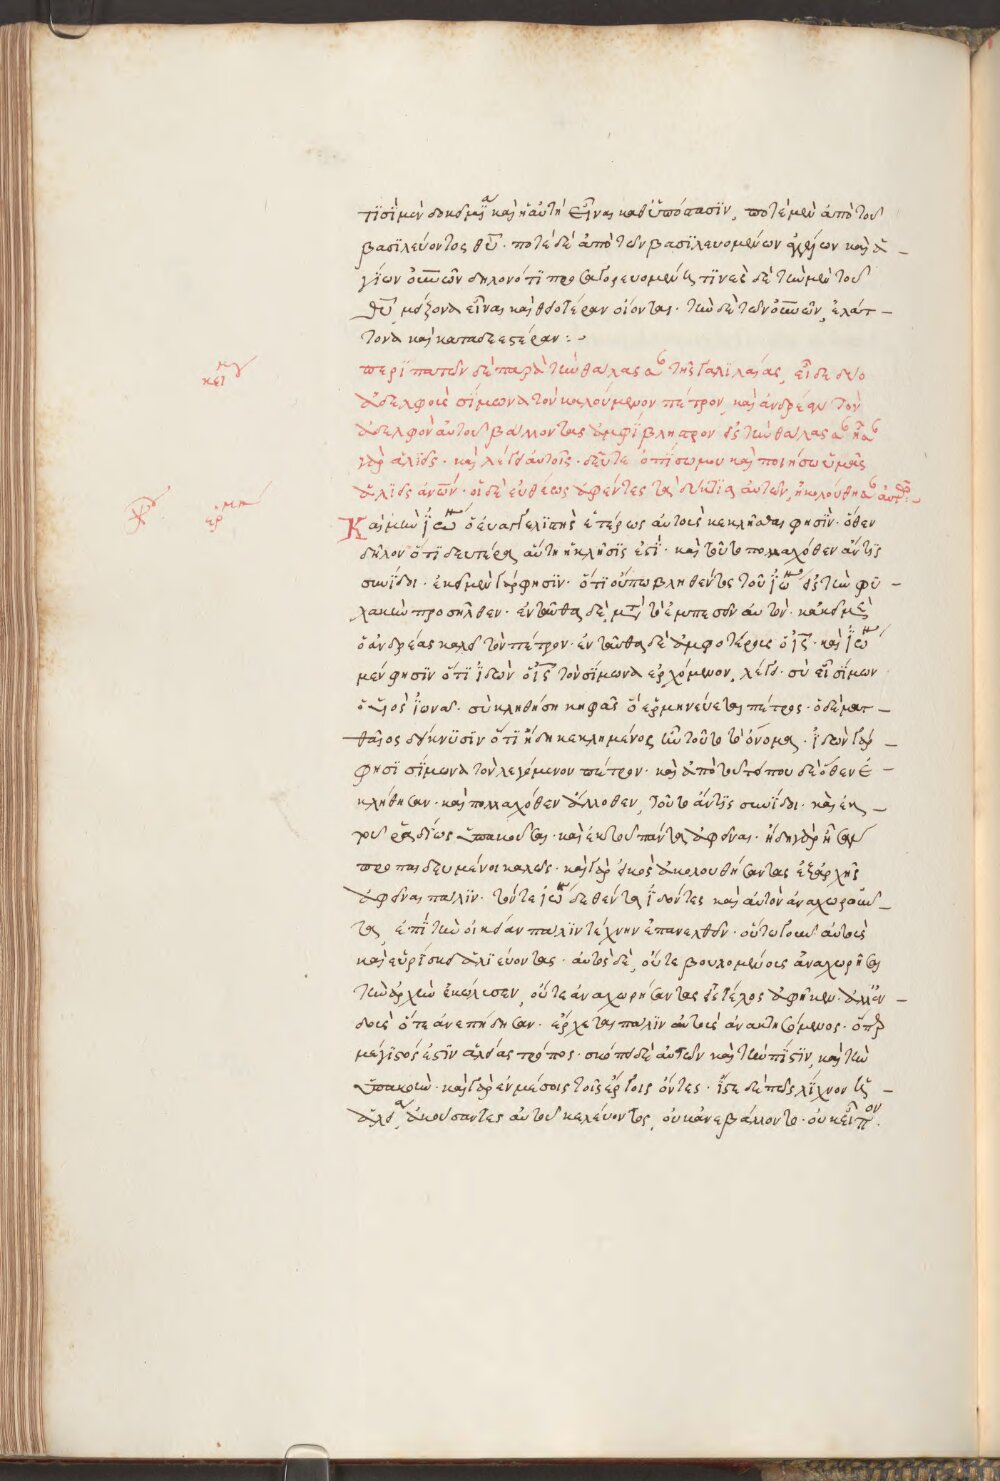 τισὶ μὲν δοκεῖ μία καὶ ἡ αὐτὴ εἶναι καθ' ὑπόστασϊν, ποτὲ μὲν ἀπὸ τοῦ
βασϊλεύοντος θῦ· ποτὲ δὲ ἀπὸ τῶν βασϊλευομένων ἀγγέλων καὶ ἁ-
γίων
θῦ μείζονα εἶναι καὶ θειοτέραν οἴονται· τὴν δὲ τῶν , ἐλάτ-
τονα καὶ καταδεεστέραν:
κεί μγ
περϊπατῶν δὲ παρὰ τὴν θάλασσαν τῆς Γαλϊλαίας, εἶδε δύο
ἀδελφοὺς σίμωνα τὸν καλούμενον πέτρον, καὶ ἀνδρέαν τὸν
ἀδελφὸν αὐτοῦ βάλλοντας ἀμφίβληστρον εἰς τὴν θάλασσαν ἦσαν
γὰρ ἁλιεῖς· καὶ λέγει αὐτοῖς· δεῦτε ὀπίσω μου καὶ ποιήσω ὑμᾶς
ἁλιεῖς ἀνῶν· οἱ δὲ εὐθέως ἀφέντες τὰ δίκτϋα αὐτῶν, ἠκολούθησαν αὐτῷ:
ἑρ μη
Καὶ μὴν ἰω ὁ εὐαγγελϊστὴς ἑτέρως αὐτοὺς κεκλῆσθαι φησϊν· ὅθεν
δῆλον ὅτι δευτέρα αὕτη ἡ κλῆσϊς ἐστϊ· καὶ τοῦτο πολλαχόθεν ἄν τϊς
συνίδοι· ἐκεῖ μὲν γάρ φησϊν· ὅτι οὔπω βληθέντος τοῦ ἰω εἰς τὴν φϋ-
λακὴν προσῆλθεν· ἐνταῦθα δὲ, μετὰ τὸ ἐμπεσεῖν αὐτόν· κἀκεῖ μὲν
ὁ ἀνδρέας καλεῖ τὸν πέτρον· ἐνταῦθα δὲ ἀμφοτέρους ὁ ἰς· καὶ ἰω
μέν φησϊν ὅτι ἰδὼν ὁ ἰς τὸν σίμωνα ἐρχόμενον, λέγει· σὺ εἶ σίμων
ὁ υἱὸς ἰωνᾶ· σὺ κληθήση κηφᾶς ὃ ἑρμηνεύεται πέτρος· ὁ δὲ ματ-
θαῖος δείκνϋσϊν ὅτι ἤδη κεκλημένος ἦν τοῦτο τὸ ὄνομα· ἰδὼν γάρ
φησϊ σίμωνα τὸν λεγόμενον πέτρον· καὶ ἀπὸ τοῦ τόπου δὲ ὅθεν ἐ-
κλήθησαν· καὶ πολλαχόθεν ἄλλοθεν, τοῦτο ἄν τϊς συνίδοι· καὶ ἐκ
τοῦ ῥαδίως ὑπακοῦσαι· καὶ ἐκ τοῦ πάντα ἀφεῖναι· ἤδη γὰρ ἦσαν
προπαιδευμένοι καλῶς· καὶ γὰρ εἰκὸς ἀκολουθήσαντας ἐξ ἀρχῆς
ἀφεῖναι πάλϊν· τόν τε ἰω δεθέντα ἰδόντες καὶ αὐτὸν ἀναχωροῦν-
τα, ἐπὶ τὴν οἰκείαν πάλϊν τέχνην ἐπανελθεῖν· οὕτω γοῦν αὐτοὺς
καὶ εὑρίσκει ἁλϊεύοντας· αὐτὸς δὲ, οὔτε βουλομένους ἀναχωρῆσαι
τὴν ἀρχὴν ἐκώλυσεν, οὔτε ἀναχωρήσαντας εἰς τέλος ἀφῆκεν· ἀλλ' ἐν-
δοὺς ὅτε ἀνεπήδησαν· ἔρχεται πάλϊν αὐτοὺς ἀνακτησόμενος· ὅπερ
μέγιστός ἐστϊν ἁλείας τρόπος· σκόπει δὲ αὐτῶν καὶ τὴν πίστϊν, καὶ τὴν
ὑπακοήν· καὶ γὰρ ἐν μέσοις τοῖς ἔργοις ὄντες· ἴστε δὲ πῶς λίχνον τὸ
ἁλεία, ἀκούσαντες αὐτοῦ κελεύοντος, οὐκ ἀνεβάλλοντο· οὐκ εἶπον·